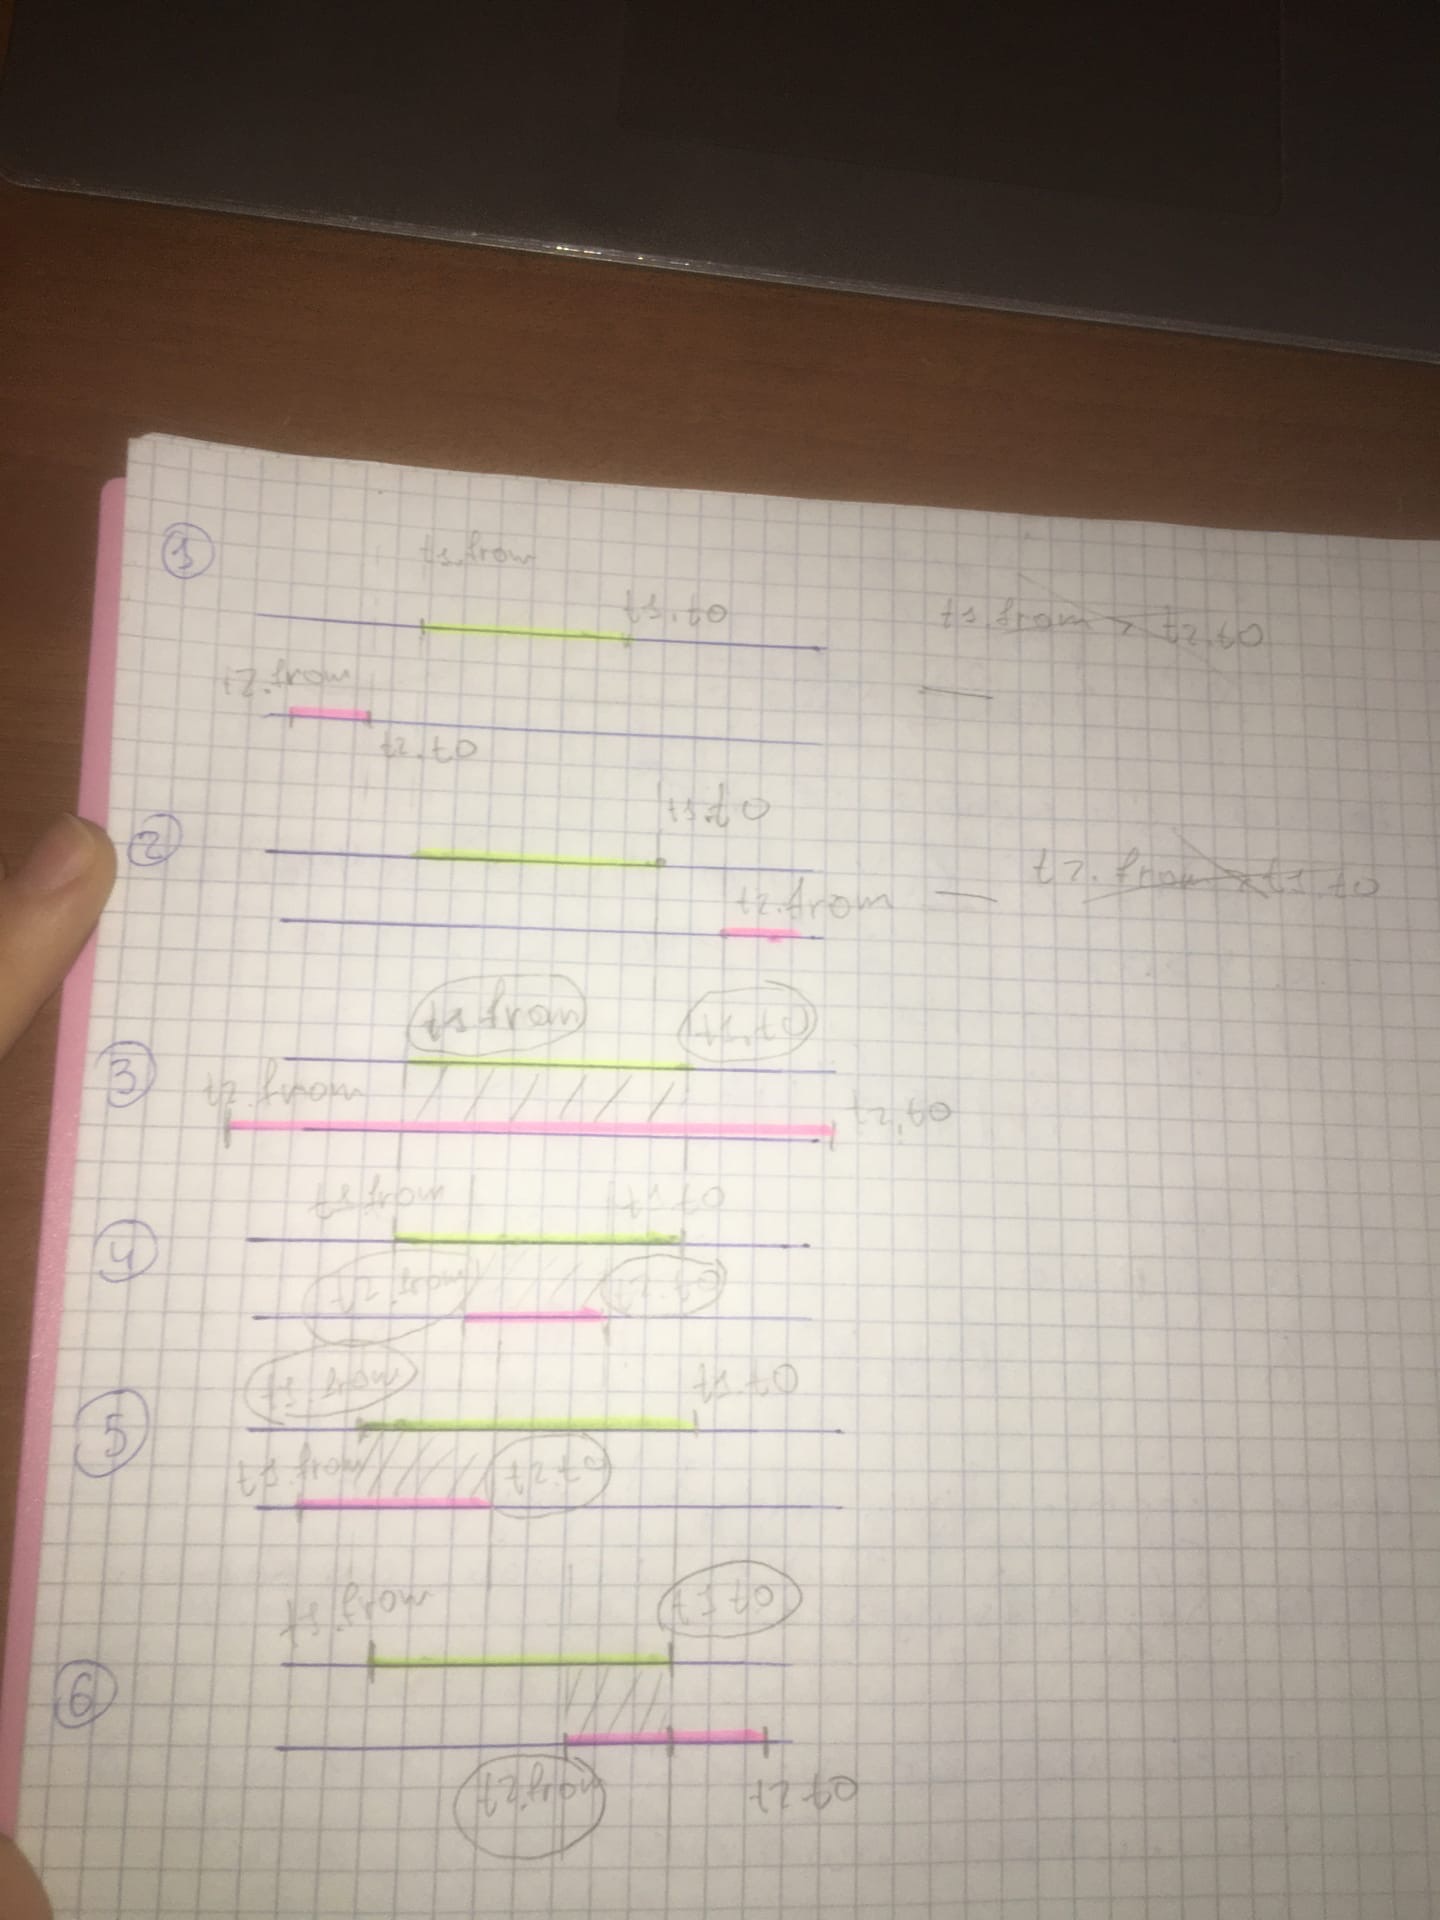 1
t1.from
t1.to
t1 from > t2.to
t2.from
—
t2.to
2
t1.to
t2.from — t2.from > t1.to
3
t1 from t1.to
t2.from
t2.to
4
t1 from t1.to
t2.from t2.to
5
t1.from t1.to
t1.from t2.to
6
t1.from t1 to
t2.from t2 to